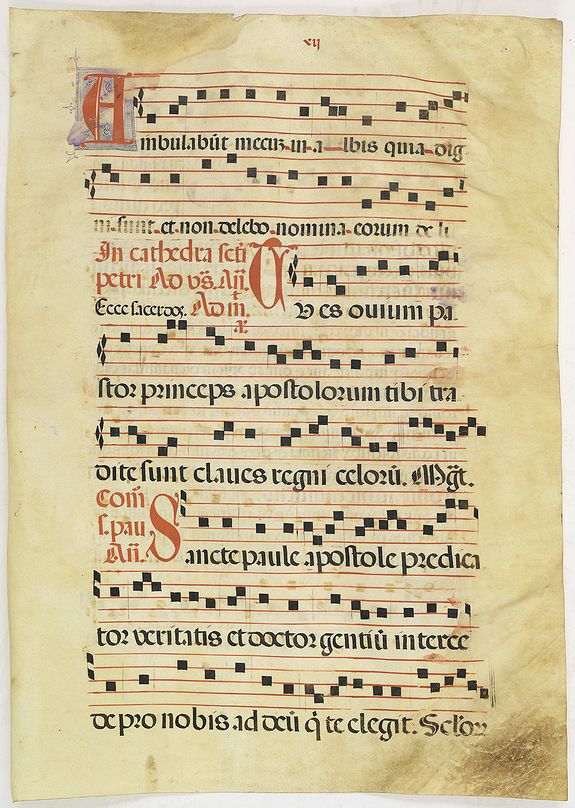 xij
Ambulabūt mecuʒ in a lbis quia dig
ni sunt et non delebo nomina eorum de li
In cathedra scti
petri Ad vs̄. Añ.
Ecce sacerdos. Ad m̄.
Tv es ouium pa
stor princeps apostolorum tibi tra
dite sunt claues regni celorū. Mgt̄.
Com̄
s. pau
Añ.
Sancte paule apostole predica
tor veritatis et doctor gentiū interce
de pro nobis ad deū q̇ te elegit.